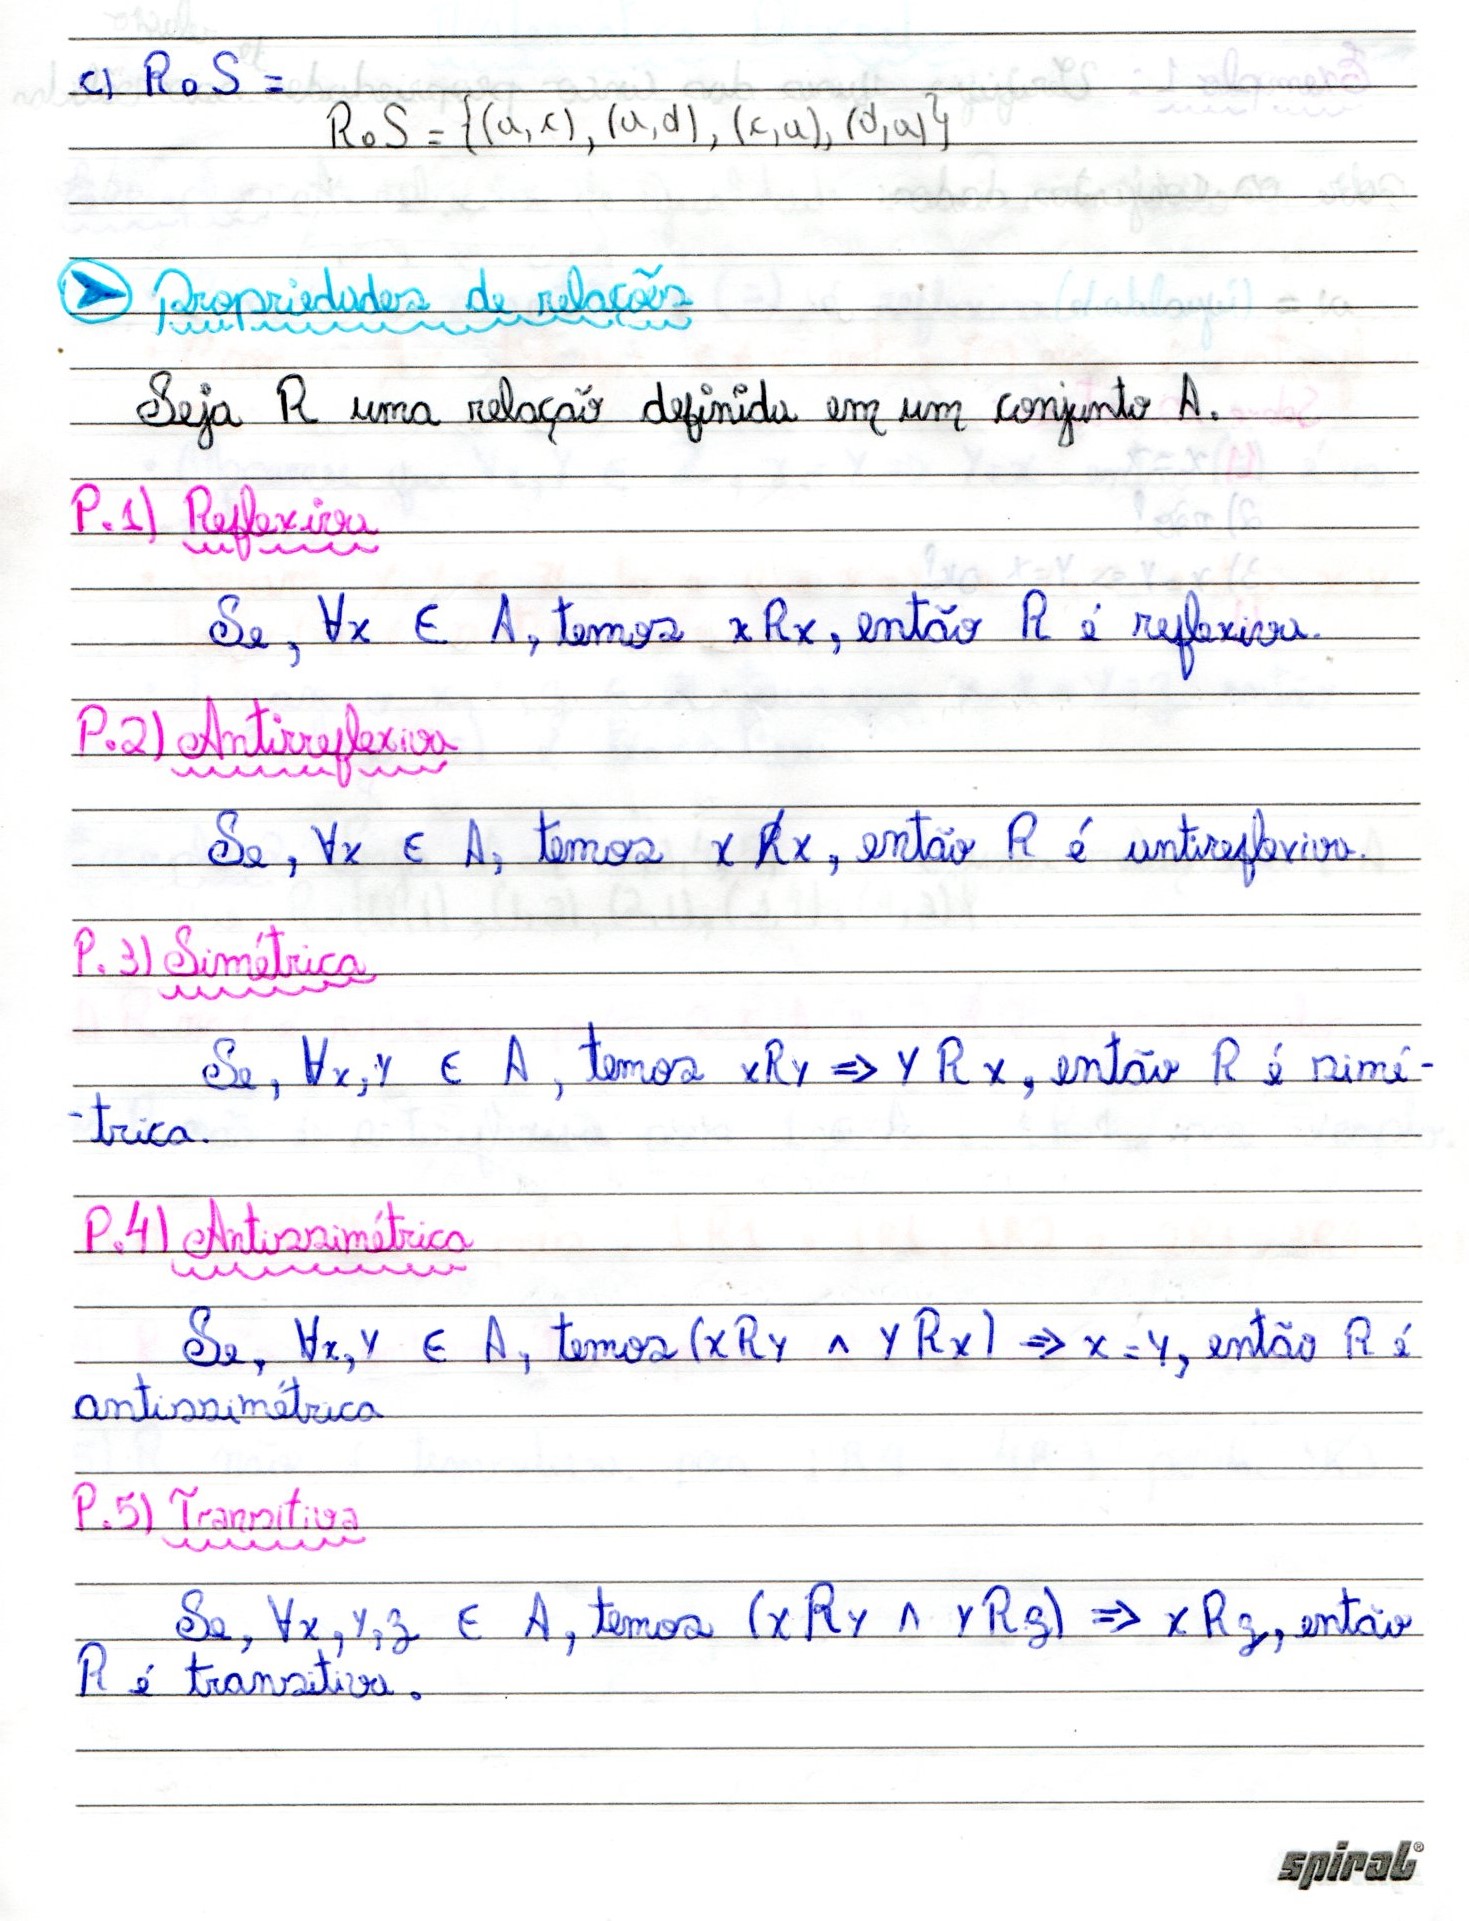 c) R∘S =
R∘S = {(a,c), (a,d), (c,a), (d,a)}
Propriedades de relações
Seja R uma relação definida em um conjunto A.
P.1) Reflexiva
Se, ∀x ∈ A, temos x R x, então R é reflexiva.
P.2) Antirreflexiva
Se, ∀x ∈ A, temos x R̸ x, então R é antireflexiva.
P.3) Simétrica
Se, ∀x,y ∈ A, temos xRy ⇒ y R x, então R é simé-
-trica.
P.4) Antissimétrica
Se, ∀x,y ∈ A, temos (xRy ∧ yRx) ⇒ x=y, então R é
antissimétrica
P.5) Transitiva
Se, ∀x,y,z ∈ A, temos (xRy ∧ yRz) ⇒ xRz, então
R é transitiva.
spiral®